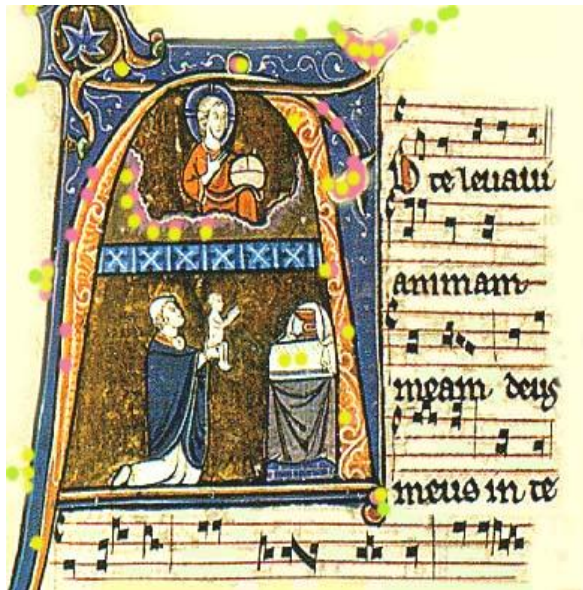 D te leuaui
animam
meam deus
meus in te